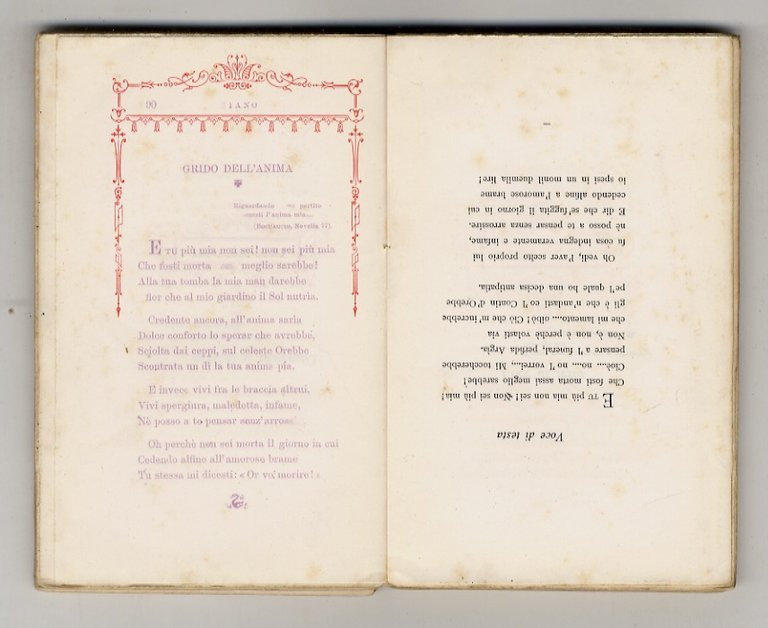 90
IANO
GRIDO DELL'ANIMA
Riguardando partito
l'anima mia....
(Boccaccio, Novella 77).
E tu più mia non sei! non sei più mia
Che fosti morta meglio sarebbe!
Alla tua tomba la mia man darebbe
fior che al mio giardino il Sol nutria.
Credente ancora, all'anima saria
Dolce conforto lo sperar che avrebbe,
Sciolta dai ceppi, sul celeste Orebbe
Scontrata un dì la tua anima pia.
E invece vivi fra le braccia altrui,
Vivi spergiura, maledetta, infame,
Nè posso a te pensar senz'arross
Oh perchè non sei morta il giorno in cui
Cedendo alfine all'amorose brame
Tu stessa mi dicesti: « Or vo' morire! »
Voce di testa
E tu più mia non sei! Non sei più mia!
Che fosti morta assai meglio sarebbe!
Cioè.... no.... no 'l vorrei.... Mi toccherebbe
pensare a 'l funeral, perfida Argia.
Non è, non è perchè volasti via
che mi lamento.... oibò! Ciò che m'increbbe
gli è che n'andasti co 'l Contin d'Orebbe
pe'l quale ho una decisa antipatia.
Oh, vedi, l'aver scelto proprio lui
fu cosa indegna veramente e infame,
nè posso a te pensar senza arrossire.
E dir che se' fuggita il giorno in cui
cedendo alfine a l'amorose brame
io spesi in un monil duemila lire!